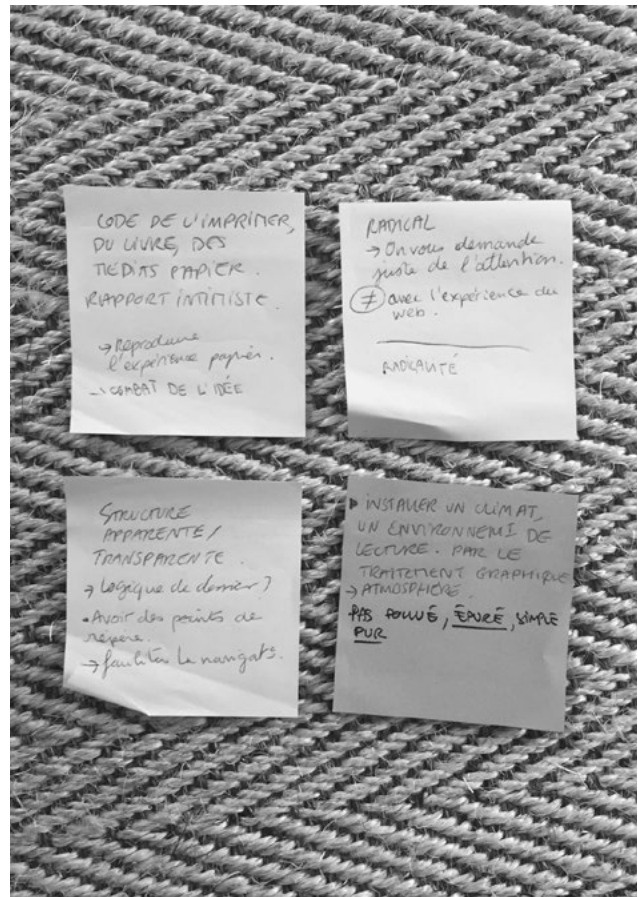 CODE DE L'IMPRIMER,
DU LIVRE, DES
MÉDIAS PAPIER.
RAPPORT INTIMISTE.
→ Reproduire
l'expérience papier.
→ COMBAT DE L'IDÉE
RADICAL
→ On vous demande
juste de l'attention.
≠ avec l'expérience du
web.
RADICALITÉ
STRUCTURE
APPARENTE /
TRANSPARENTE.
→ Logique de dossier ?
• Avoir des points de
repère.
→ faciliter la navigat°.
▶ INSTALLER UN CLIMAT,
UN ENVIRONNEMT DE
LECTURE. PAR LE
TRAITEMENT GRAPHIQUE
→ ATMOSPHÈRE.
PAS POLLUÉ, ÉPURÉ, SIMPLE
PUR